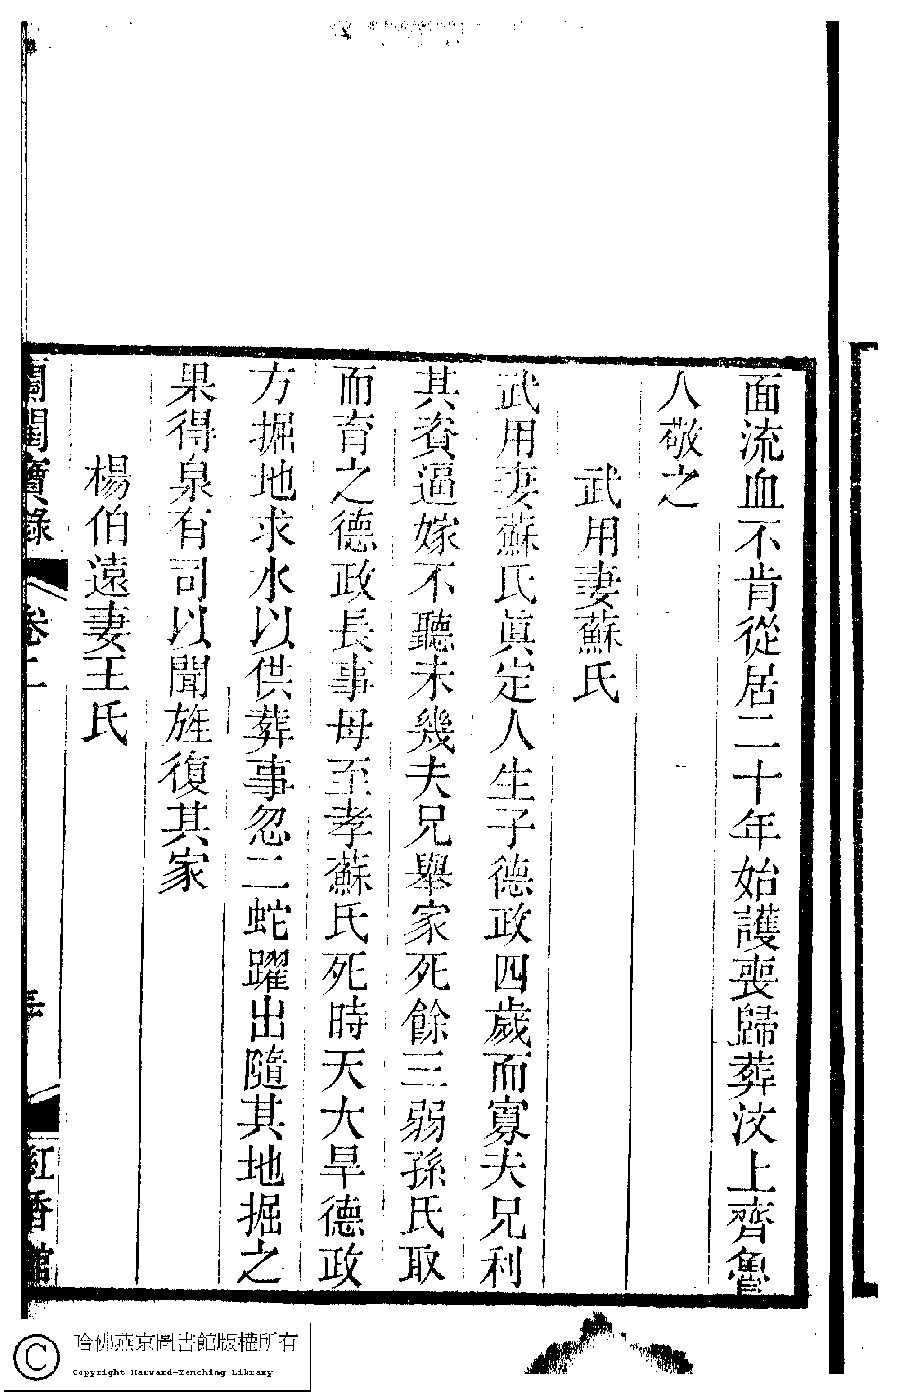 面流血不肯從居二十年始護喪歸葬汶上齊魯
人敬之
武用妻蘇氏
武用妻蘇氏眞定人生子德政四歲而寡夫兄利
其資逼嫁不聽未幾夫兄舉家死餘三弱孫氏取
而育之德政長事母至孝蘇氏死時天大旱德政
方掘地求水以供葬事忽二蛇躍出隨其地掘之
果得泉有司以聞旌復其家
楊伯遠妻王氏
閨寶錄 卷二 紅香館
哈佛燕京圖書館版權所有
Copyright Harvard-Yenching Library